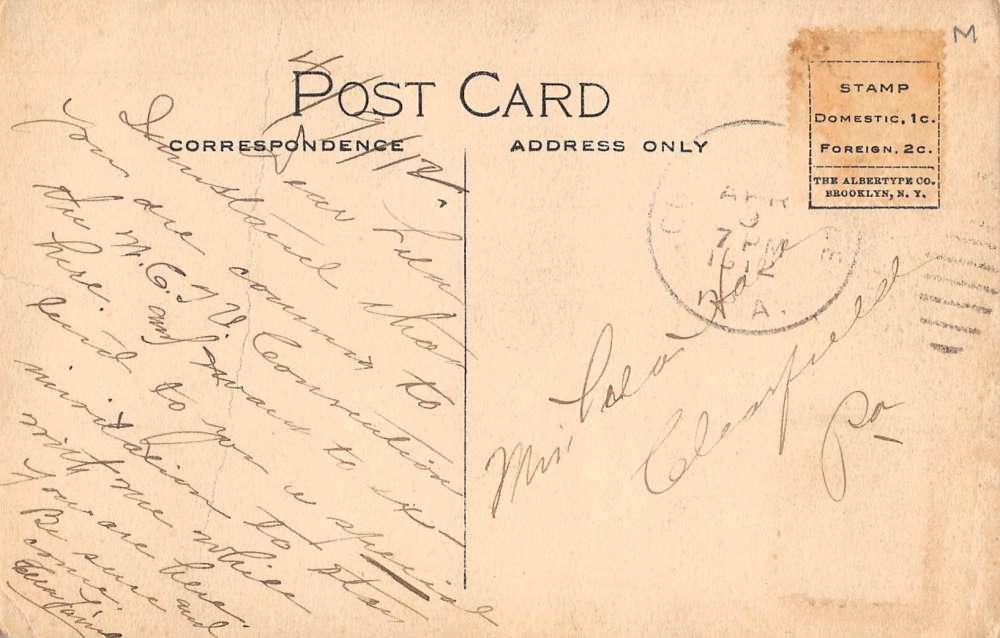 M
POST CARD
CORRESPONDENCE
ADDRESS ONLY
STAMP
DOMESTIC, 1c.
FOREIGN, 2c.
THE ALBERTYPE CO.
BROOKLYN, N. Y.
APR
7
1912
A.
4/7/12
Dear
I understand that
you are coming to
the W.C.T.U. Convention
here. and I want to ex-
tend to you a special
invitation to stay
with me while
you are here.
Be sure and
come.
Miss
Clearfield
Pa